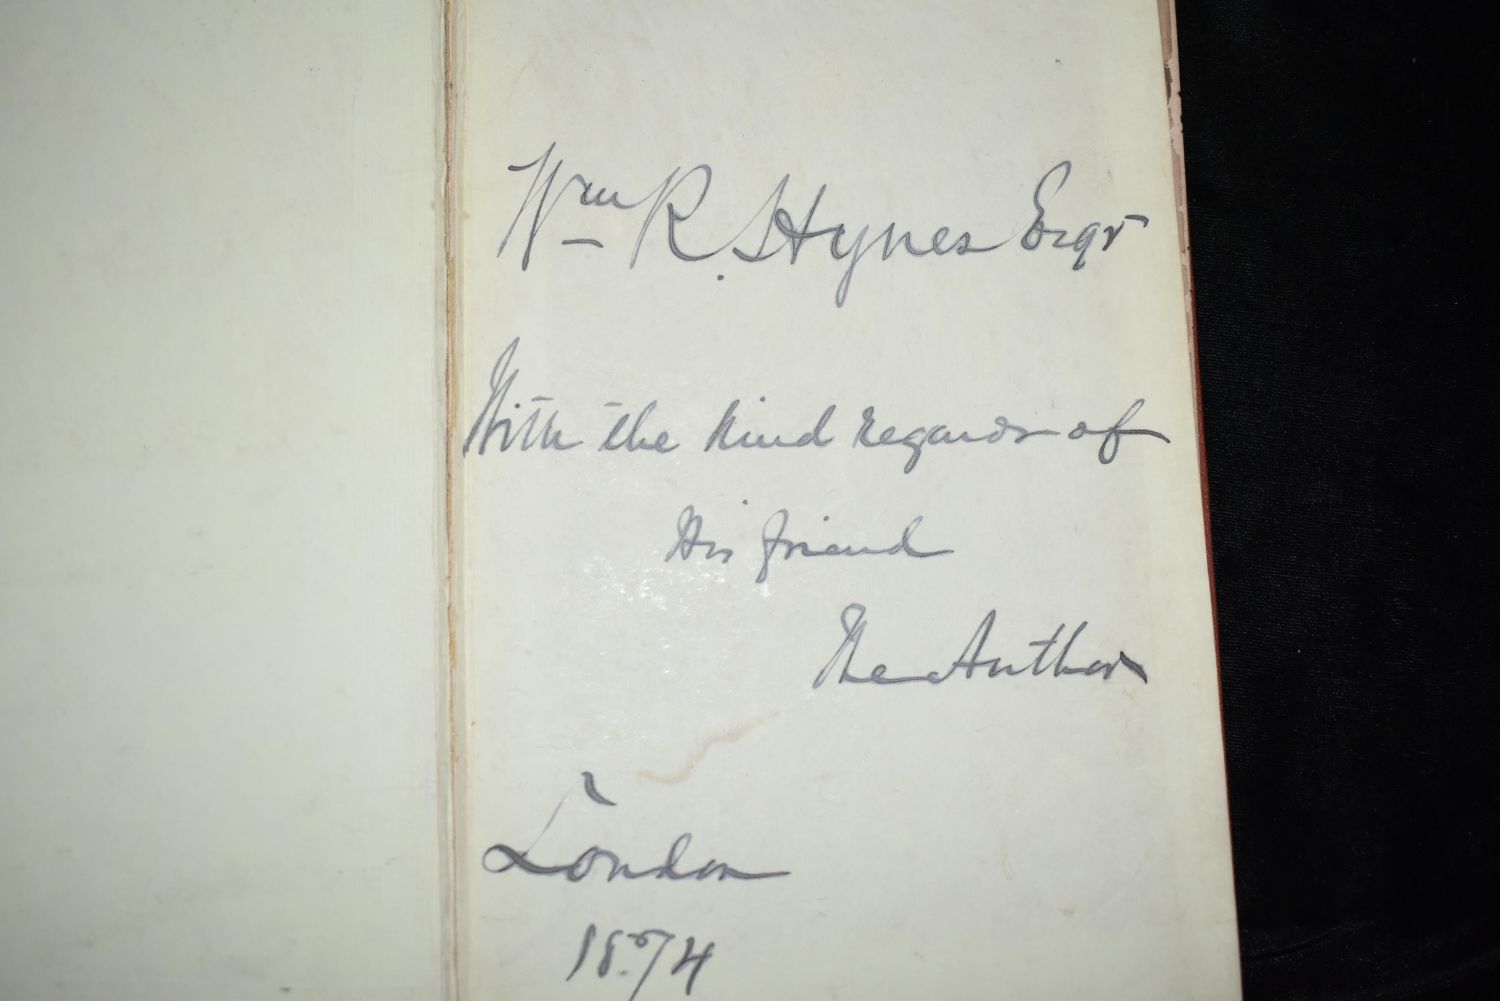 Wm R. Hynes Esqr
With the kind regards of
His friend
The Author
London
1874